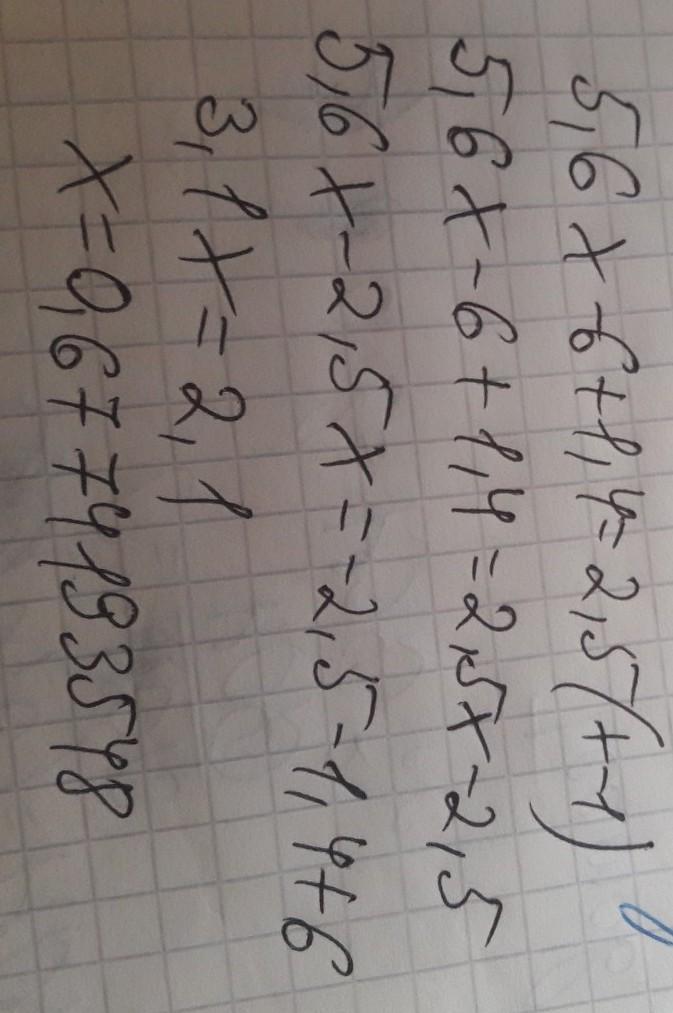 5,6x-6+1,4=2,5(x-1)
5,6x-6+1,4=2,5x-2,5
5,6x-2,5x=-2,5-1,4+6
3,1x=2,1
x=0,6774193548